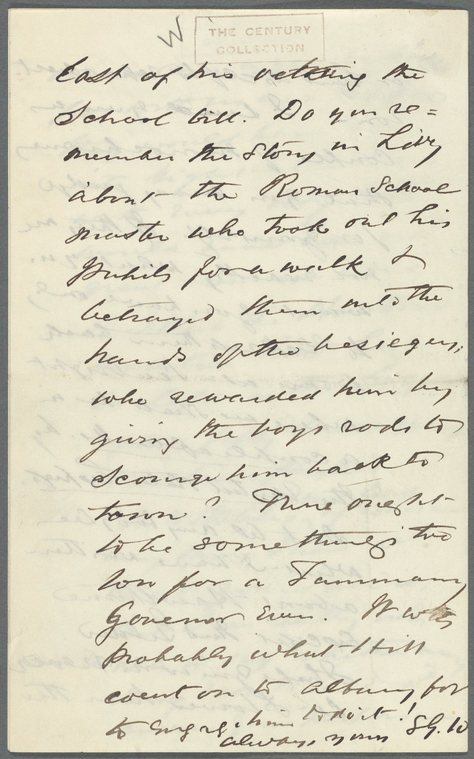 W
THE CENTURY
COLLECTION
East of his vetoing the
School bill. Do you re=
member the Story in Livy
about the Roman School
master who took out his
pupils for a walk &
betrayed them into the
hands of the besiegers,
who rewarded him by
giving the boys rods to
scourge him back to
town? There ought
to be something too
low for a Tammany
Governor even. It was
probably what Hill
went on to Albany for
to him to do it!
always yours